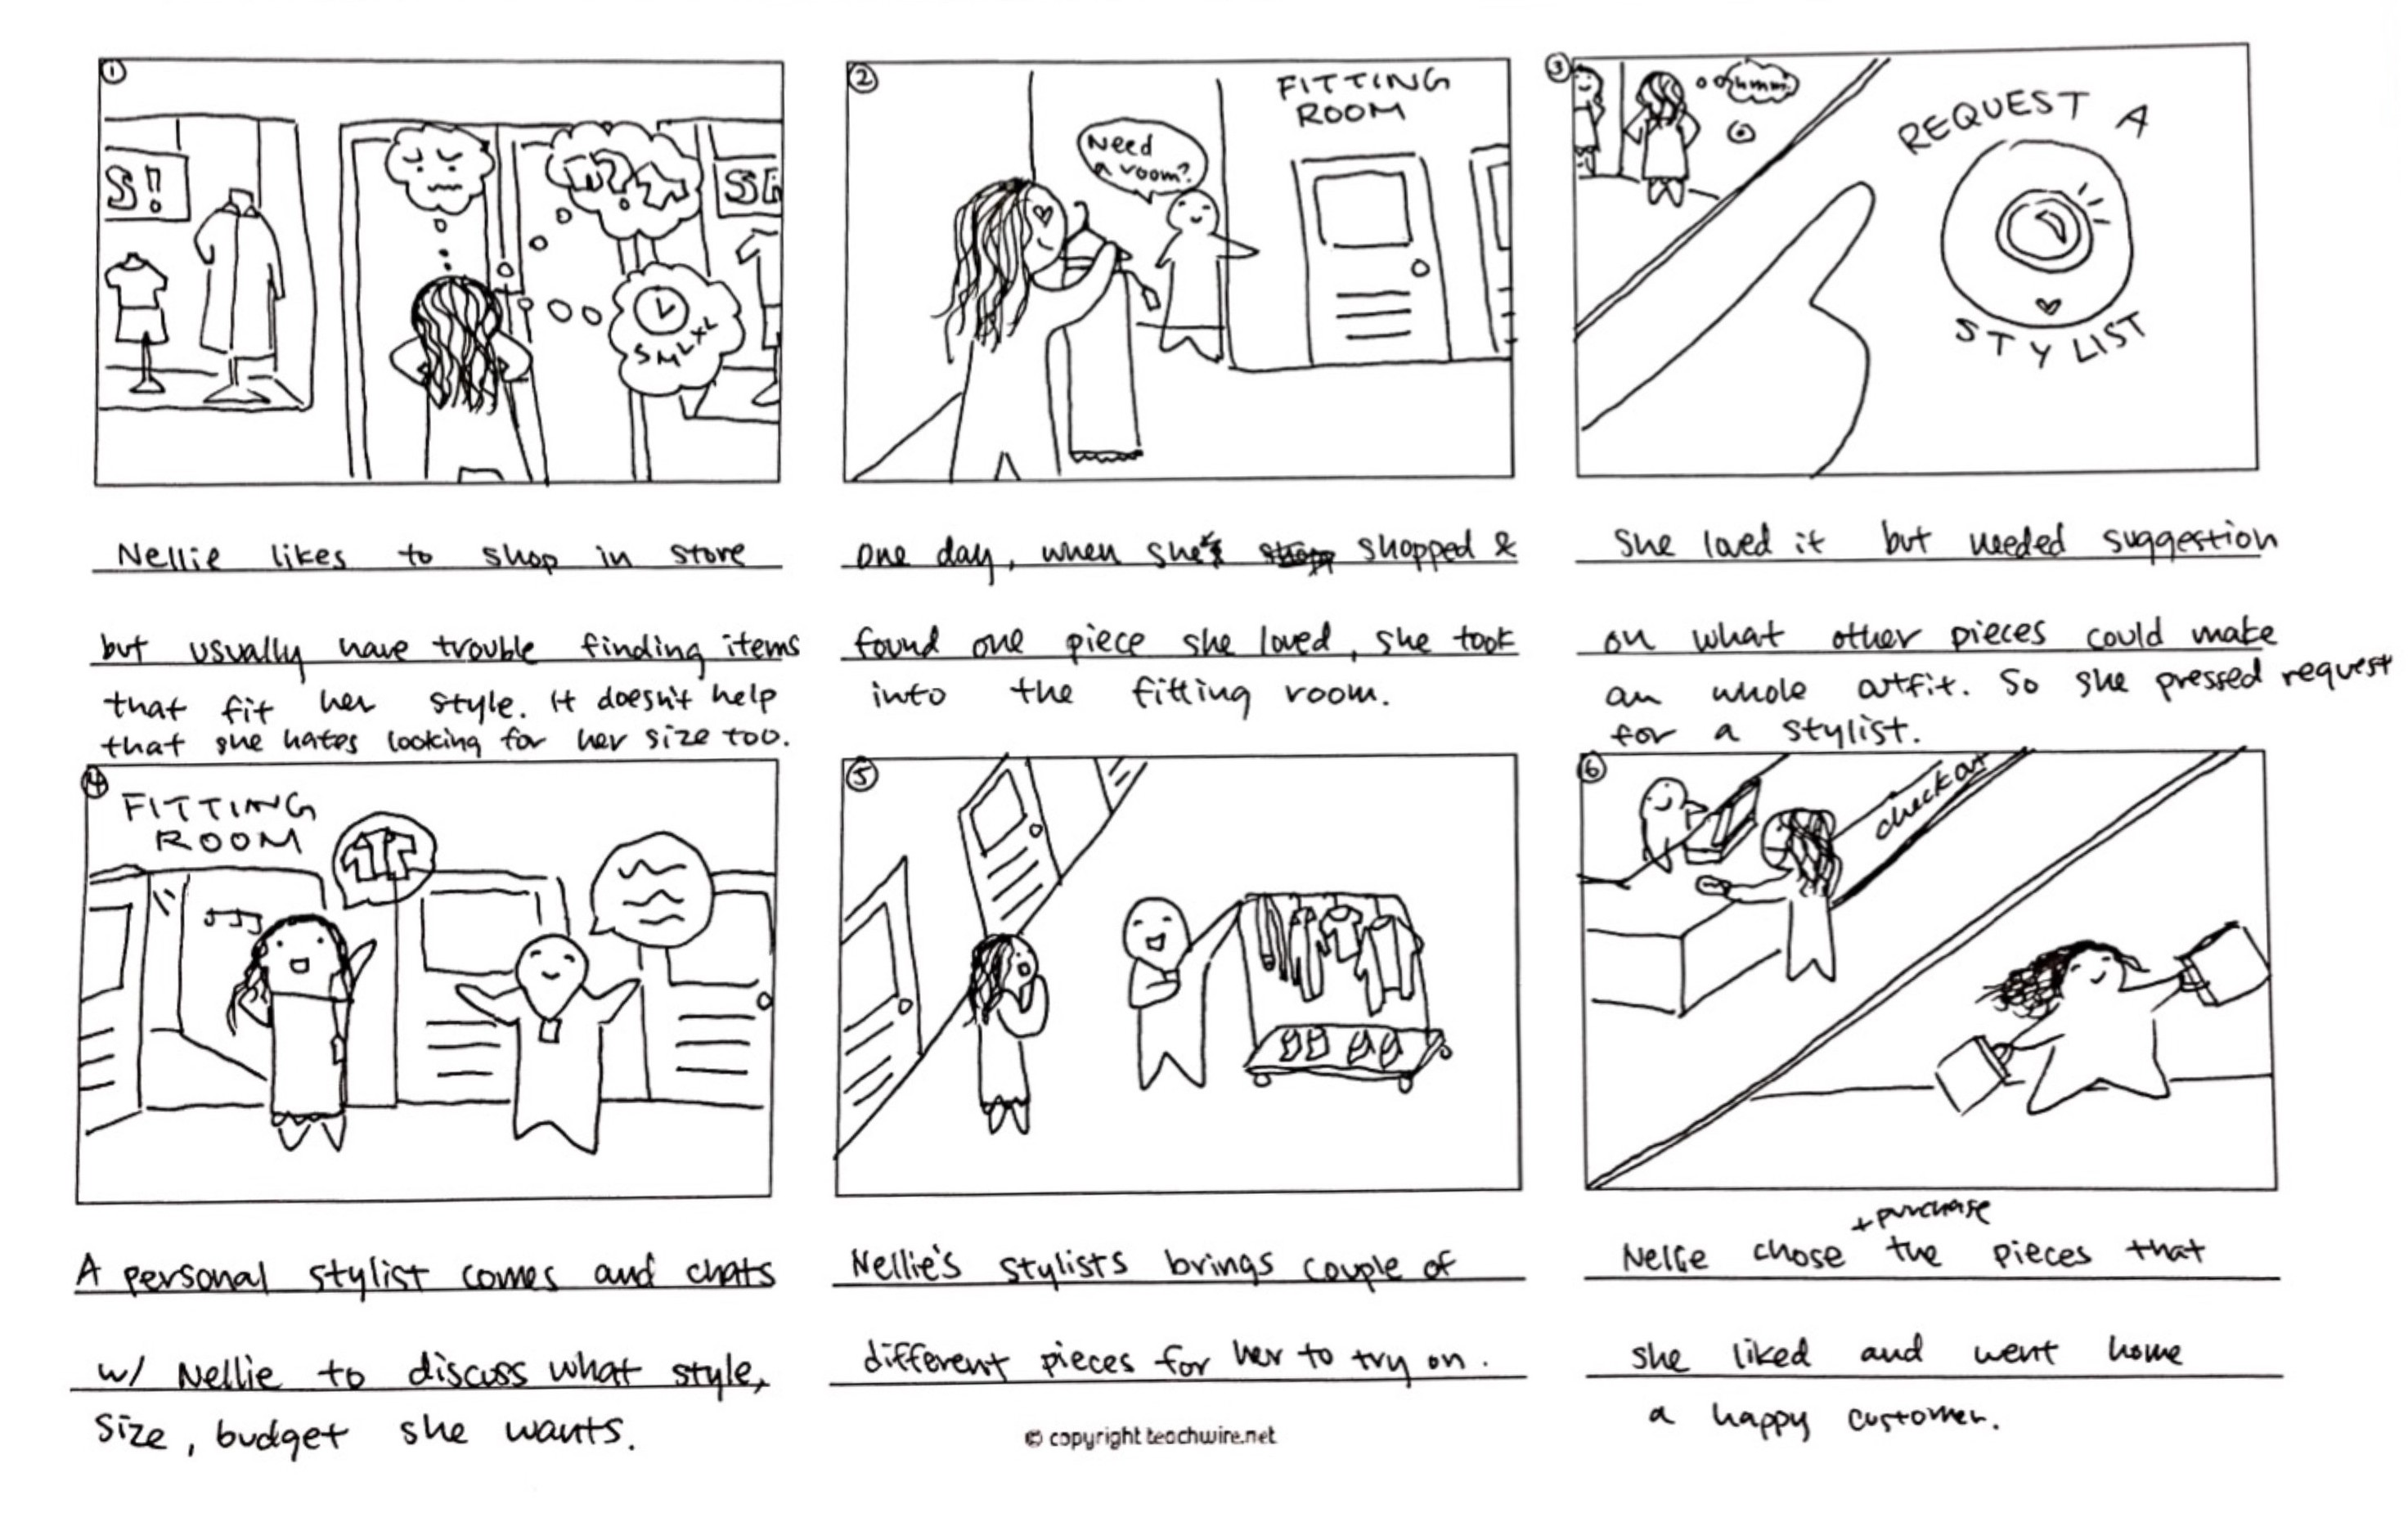 1
S!!
SA
S M L XL
Nellie likes to shop in store
but usually have trouble finding items
that fit her style. It doesn't help
that she hates looking for her size too.
2
FITTING
ROOM
Need
a room?
One day, when she shopped &
found one piece she loved, she took
into the fitting room.
3
hmmm
REQUEST A
STYLIST
She loved it but needed suggestion
on what other pieces could make
an whole outfit. So she pressed request
for a stylist.
4
FITTING
ROOM
A personal stylist comes and chats
w/ Nellie to discuss what style,
size, budget she wants.
5
Nellie's stylists brings couple of
different pieces for her to try on.
6
checkout
+ purchase
Nellie chose the pieces that
she liked and went home
a happy customer.
© copyright teachwire.net